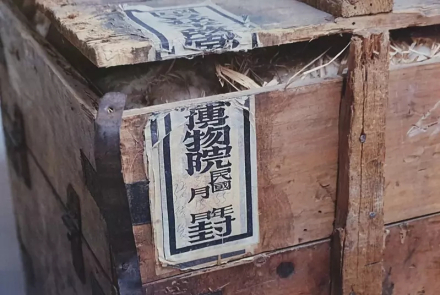 博物院
民國
月 年
封